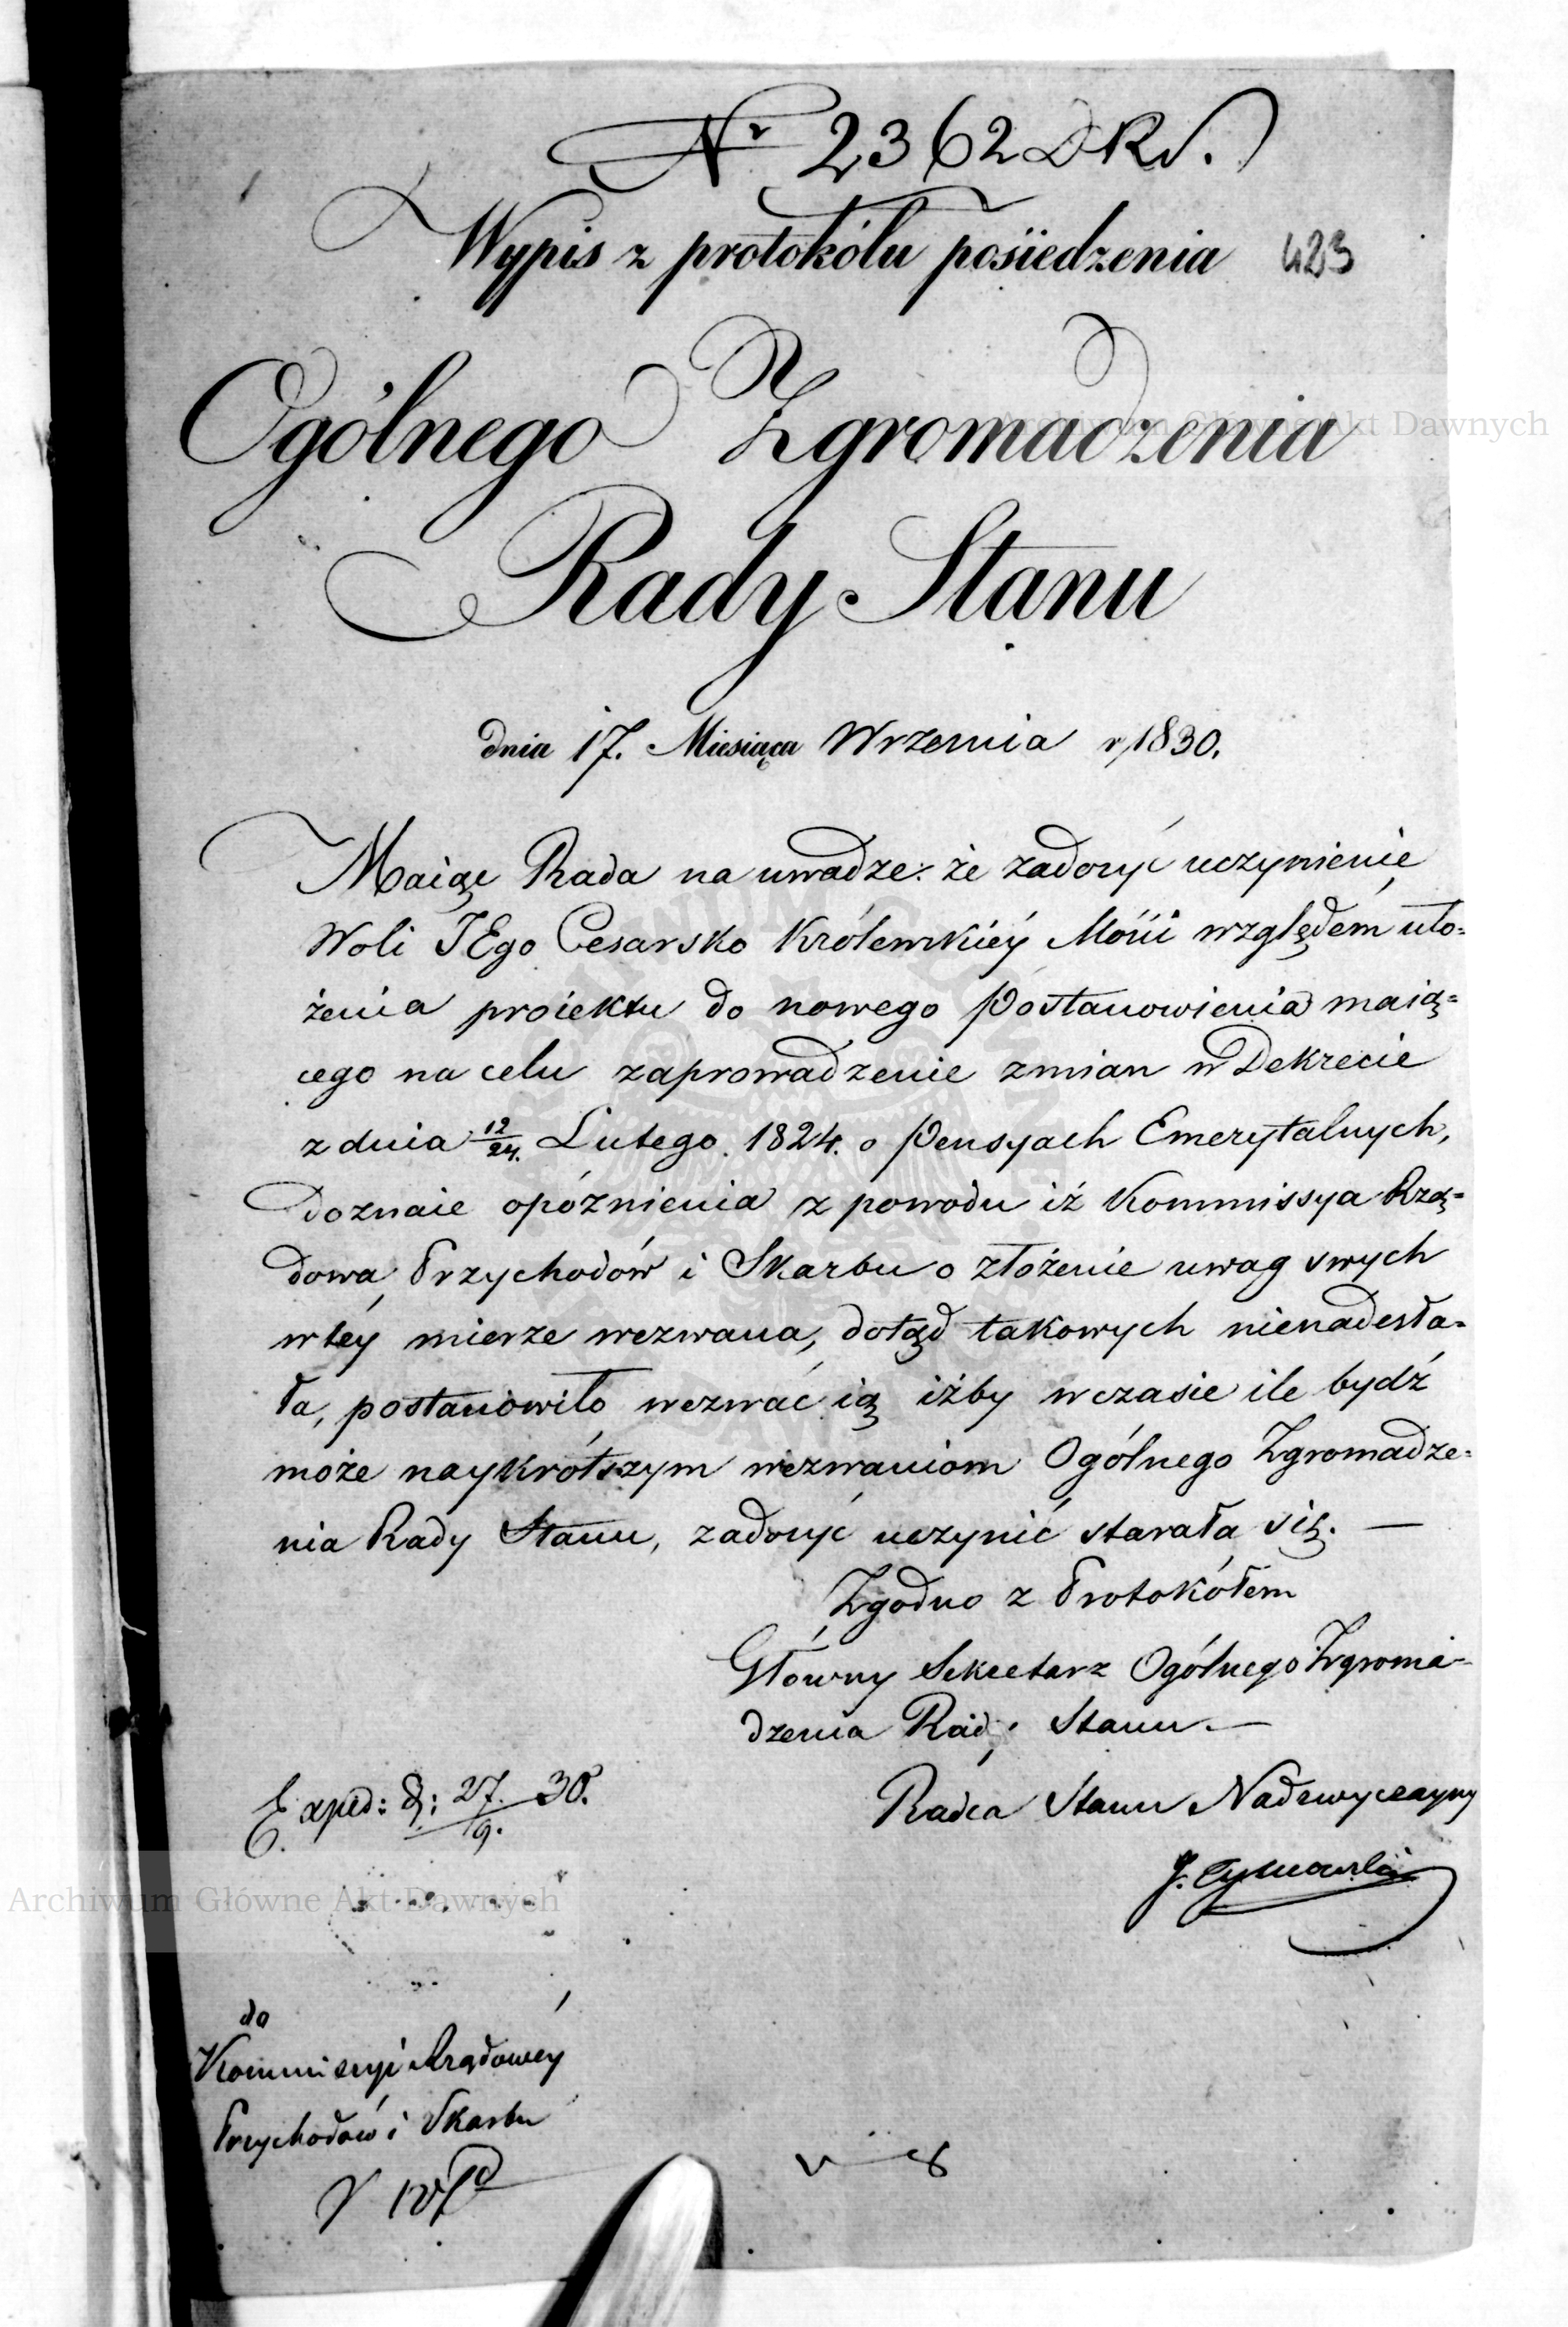 Nr 2362 DRS.
Wypis z protokólu posiedzenia 423
Ogólnego Zgromadzenia
Rady Stanu
dnia 17. Miesiąca Września r. 1830.
Maiąc Rada na uwadze: że zadosyć uczynienie
Woli JEgo Cesarsko Królewskiéy Mości względem uło=
żenia proiektu do nowego Postanowienia maią=
cego na celu zaprowadzenie zmian w Dekrecie
z dnia 12/24. Lutego 1824. o Pensyach Emerytalnych,
doznaie opóznienia z powodu iż Kommissya Rzą=
dowa Przychodów i Skarbu o złożenie uwag swych
w téy mierze wezwana, dotąd takowych nienadesła=
ła, postanowiło wezwać ią iżby w czasie ile bydź
może naykrótszym wezwaniom Ogólnego Zgromadze=
nia Rady Stanu, zadosyć uczynić starała się. —
Zgodno z Protokółem
Główny Sekretarz Ogólnego Zgroma=
dzenia Rady Stanu —
Radca Stanu Nadzwyczayny
J. Tymowski
Exped: d: 27./9. 30.
do
Kommissyi Rządowéy
Przychodów i Skarbu
Archiwum Główne Akt Dawnych
Archiwum Główne Akt Dawnych